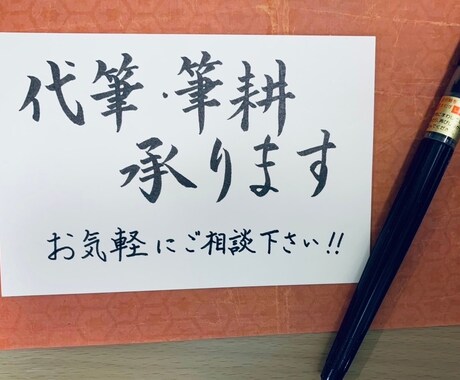 代筆・筆耕
承ります
お気軽にご相談下さい!!